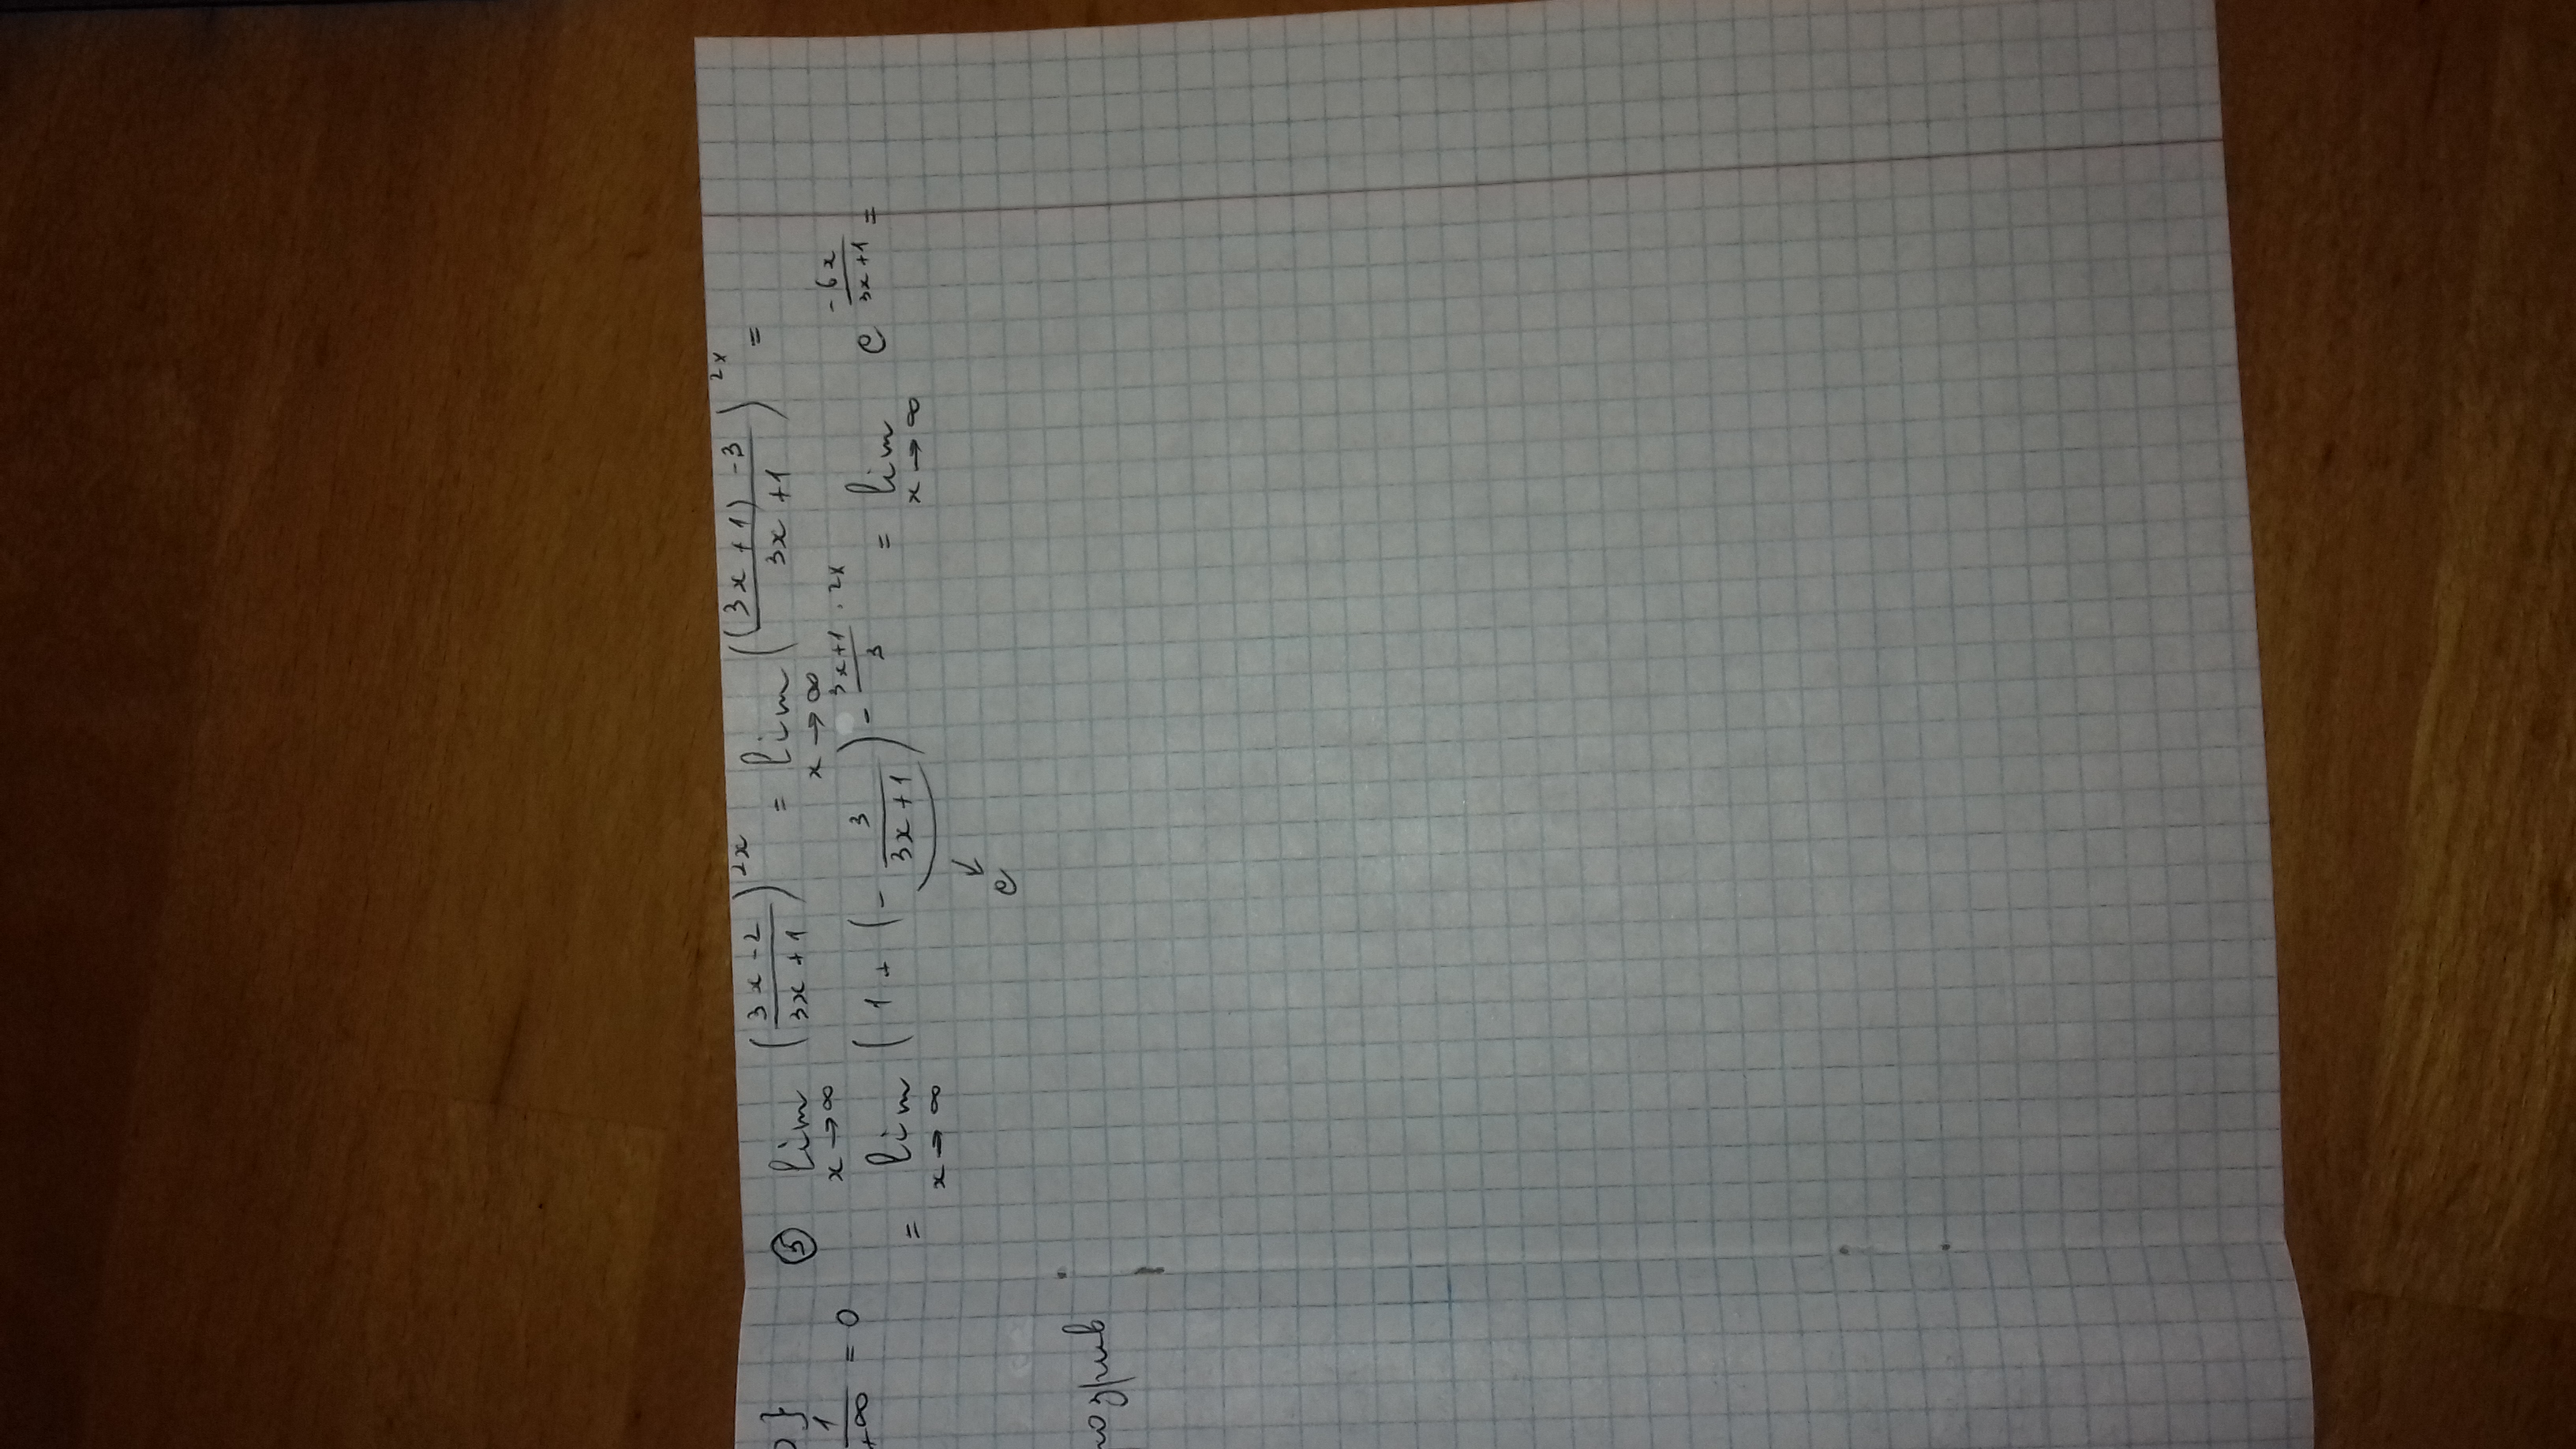 }
1/+∞ = 0
розрив
⑤ lim x→∞ ((3x-2)/(3x+1))^2x = lim x→∞ (((3x+1)-3)/(3x+1))^2x =
= lim x→∞ (1 + (- 3/(3x+1))^- (3x+1)/3 · 2x = lim x→∞ e^(-6x/(3x+1)) =
↓
e